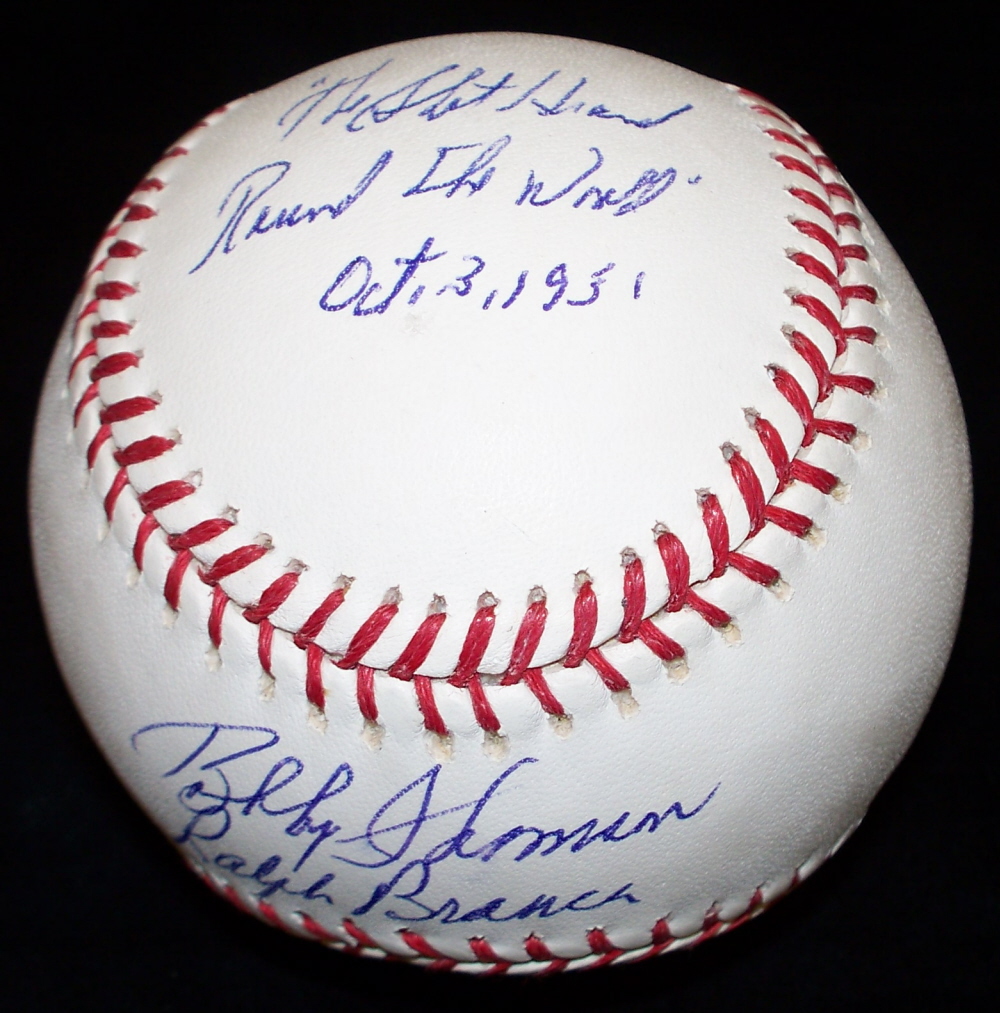 "The Shot Heard
Round The World"
Oct. 3, 1951
Bobby Thomson
Ralph Branca